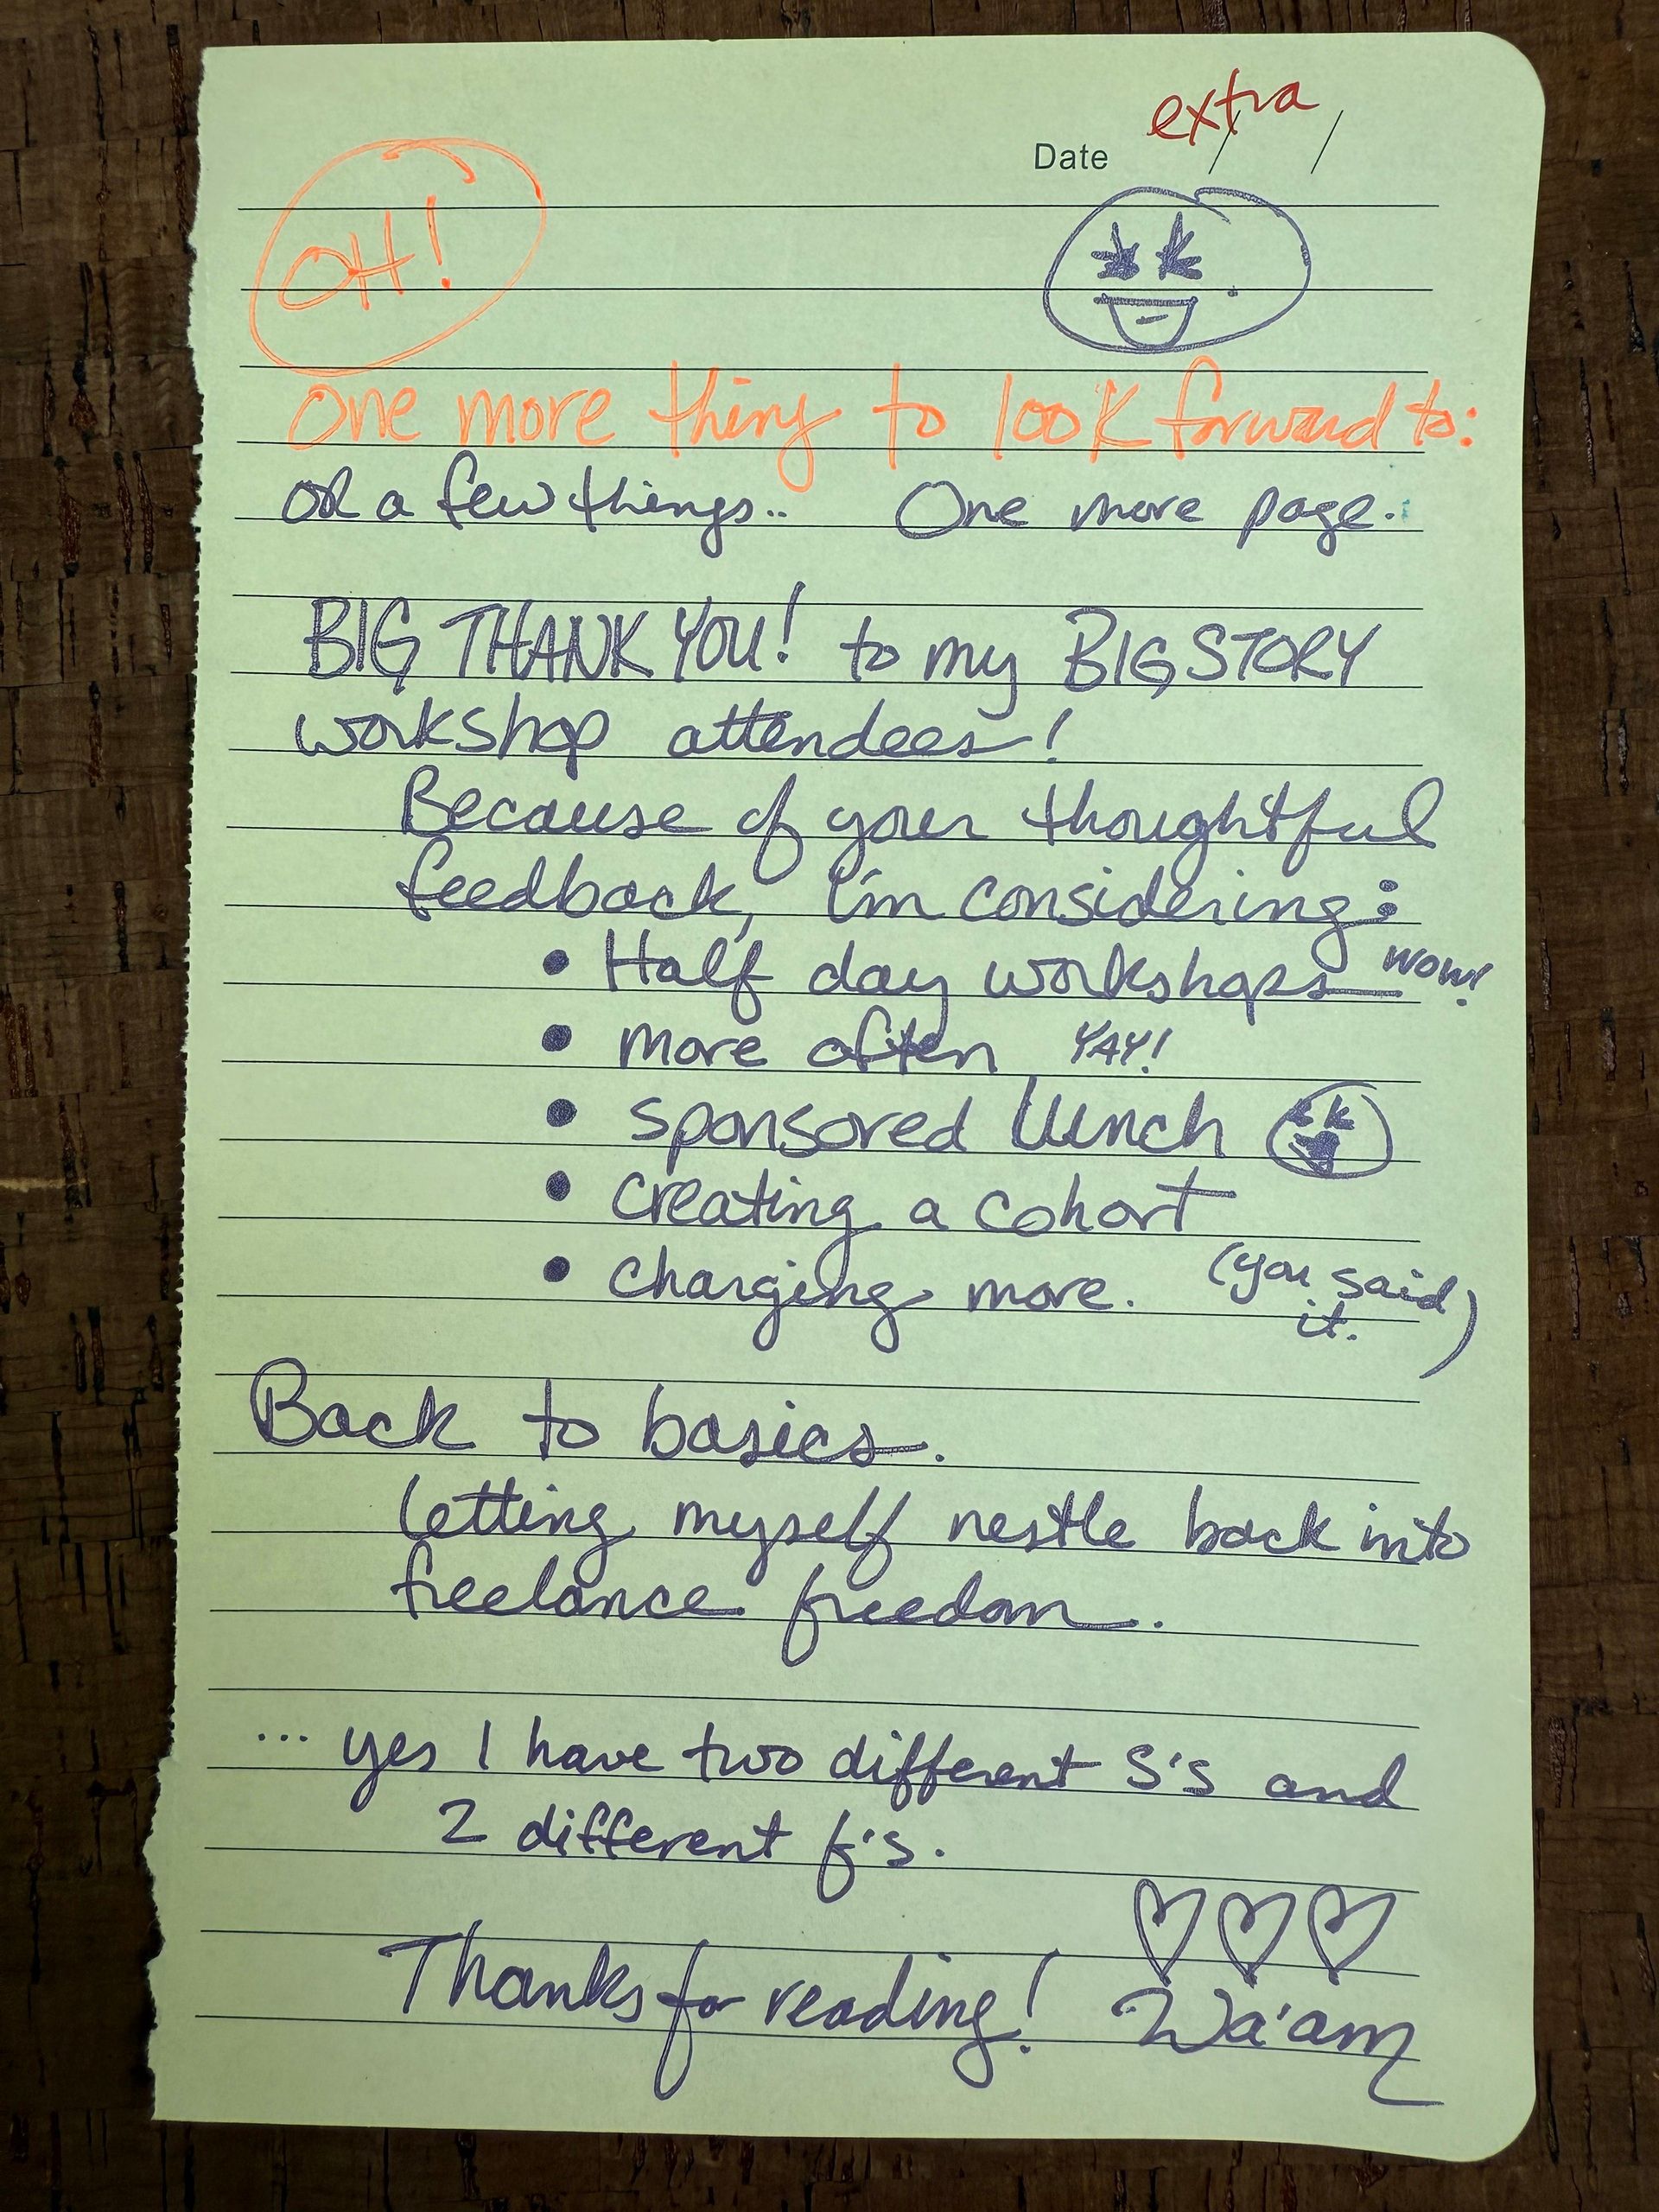 extra
Date / /
OH!
One more thing to look forward to:
or a few things.. One more page.
BIG THANK YOU! to my BIG STORY
workshop attendees!
Because of your thoughtful
feedback, I'm considering:
• Half day workshops wow!
• more often YAY!
• sponsored lunch
• creating a cohort
• charging more. (you said
it.)
Back to basics.
letting myself nestle back into
freelance freedom.
... yes I have two different S's and
2 different f's.
Thanks for reading! Wa'am